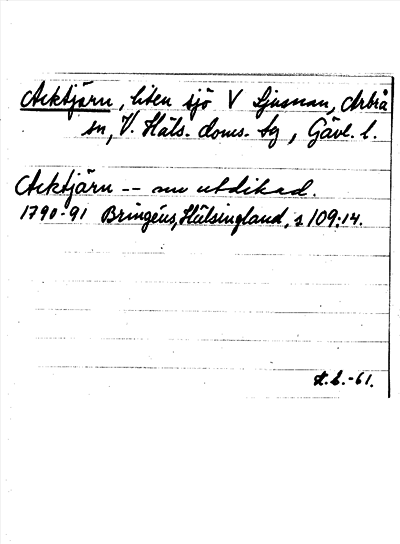 Acktjärn, liten sjö V Ljusnan, Arbrå
sn, V. Häls. doms. sg, Gävl. l.
Acktjärn -- nu utdikad.
1790-91 Bringéus, Hälsingland, s 109:14.
H.L.-61.